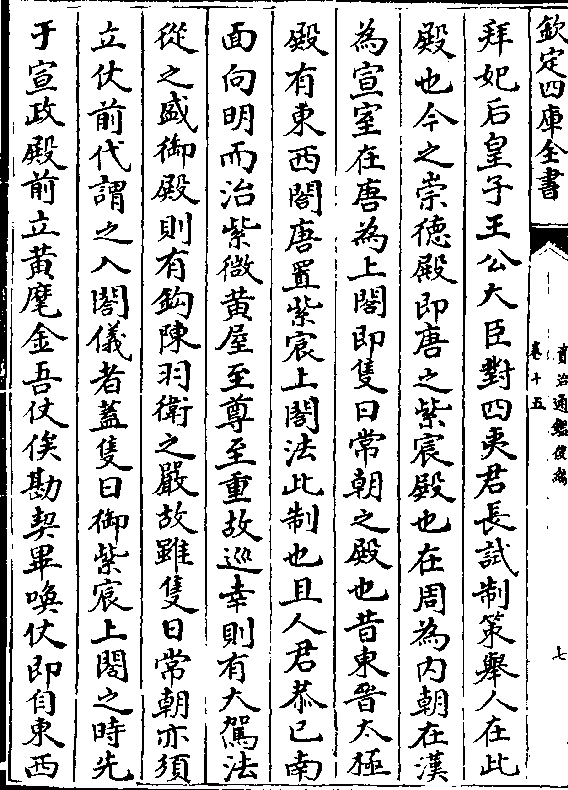 欽定四庫全書
資治通鑑後編
卷十五
七
拜妃后皇子王公大臣對四夷君長試制策舉人在此
殿也今之崇德殿即唐之紫宸殿也在周為内朝在漢
為宣室在唐為上閤即隻日常朝之殿也昔東晉太極
殿有東西閤唐置紫宸上閤法此制也且人君恭已南
面向明而治紫微黄屋至尊至重故巡幸則有大駕法
從之盛御殿則有鈎陳羽衛之嚴故雖隻日常朝亦須
立仗前代謂之入閤儀者蓋隻日御紫宸上閤之時先
于宣政殿前立黄麾金吾仗俟勘契畢喚仗即自東西